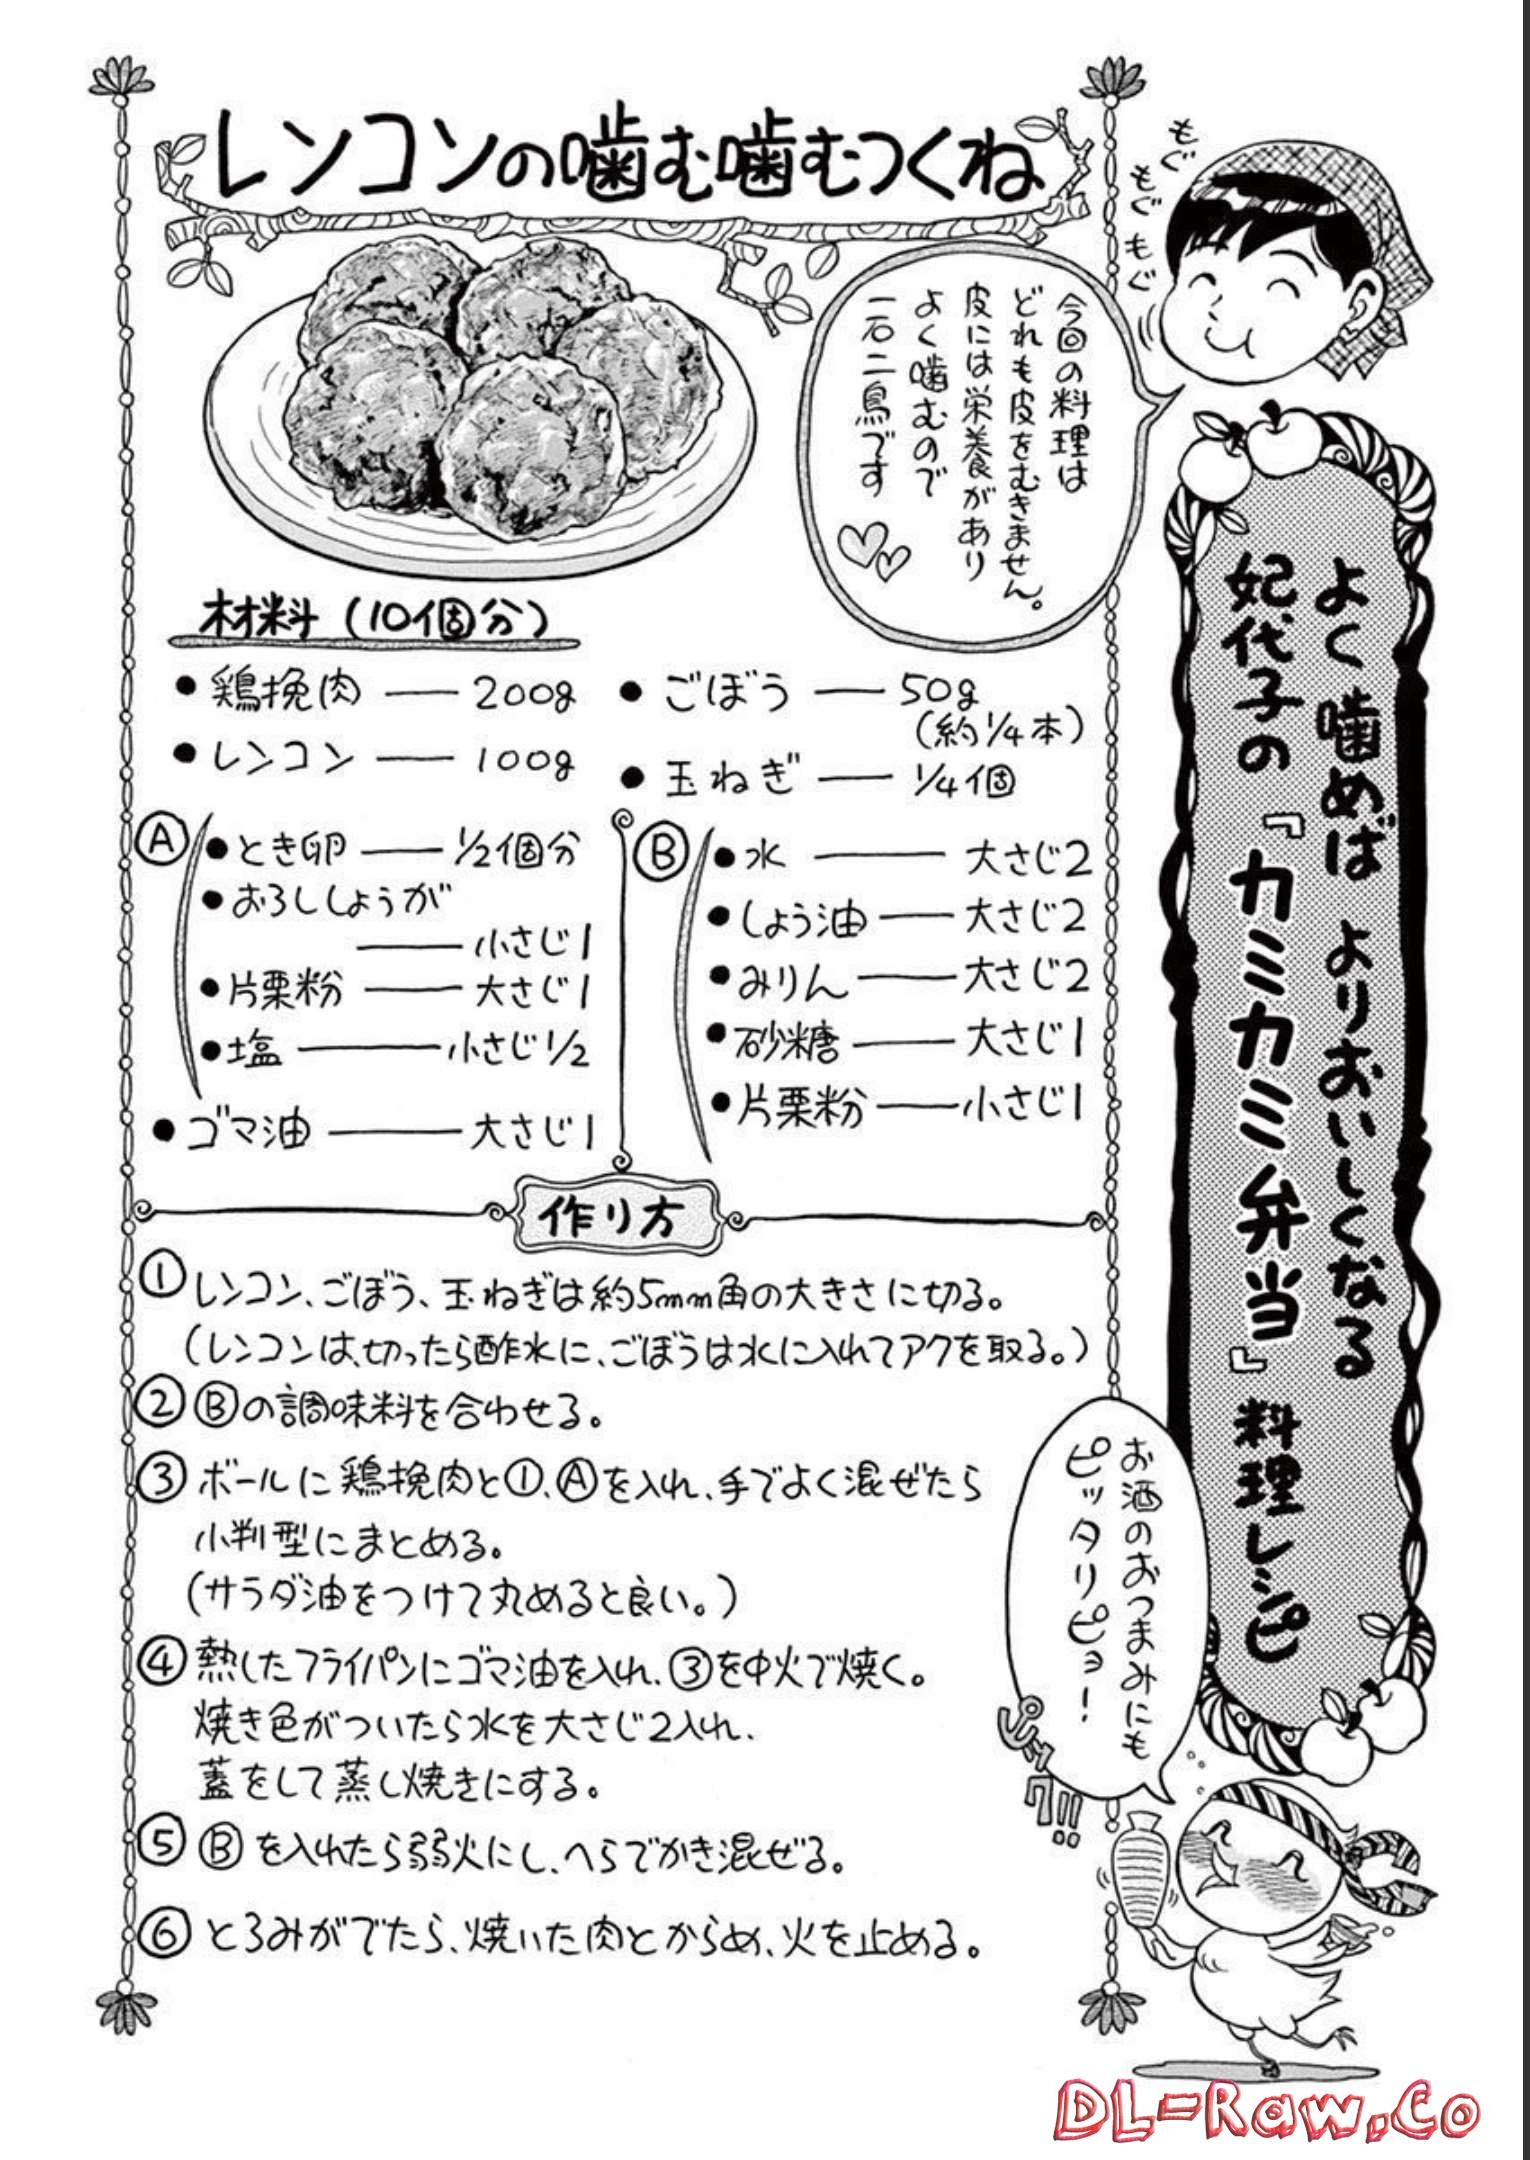 レンコンの噛む噛むつくね
もぐ
もぐ
もぐ
今回の料理は
どれも皮をむきません。
皮には栄養があり
よく噛むので
一石二鳥です
よく噛めば よりおいしくなる
妃代子の『カミカミ弁当』料理レシピ
材料(10個分)
● 鶏挽肉 ── 200g
● レンコン ── 100g
● ごぼう ── 50g
(約1/4本)
● 玉ねぎ ── 1/4個
Ⓐ
● とき卵 ── 1/2個分
● おろししょうが
── 小さじ1
● 片栗粉 ── 大さじ1
● 塩 ── 小さじ1/2
● ゴマ油 ── 大さじ1
Ⓑ
● 水 ── 大さじ2
● しょう油 ── 大さじ2
● みりん ── 大さじ2
● 砂糖 ── 大さじ1
● 片栗粉 ── 小さじ1
作り方
① レンコン、ごぼう、玉ねぎは約5mm角の大きさに切る。
(レンコンは、切ったら酢水に、ごぼうは水に入れてアクを取る。)
② Ⓑの調味料を合わせる。
③ ボールに鶏挽肉と①、Ⓐを入れ、手でよく混ぜたら
小判型にまとめる。
(サラダ油をつけて丸めると良い。)
④ 熱したフライパンにゴマ油を入れ、③を中火で焼く。
焼き色がついたら水を大さじ2入れ、
蓋をして蒸し焼きにする。
⑤ Ⓑを入れたら弱火にし、へらでかき混ぜる。
⑥ とろみがでたら、焼いた肉とからめ、火を止める。
お酒のおつまみにも
ピッタリピョ!
DL-Raw.Co